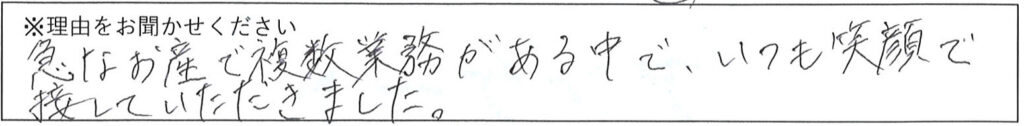 ※理由をお聞かせください
急なお産で複数業務がある中で、いつも笑顔で
接していただきました。